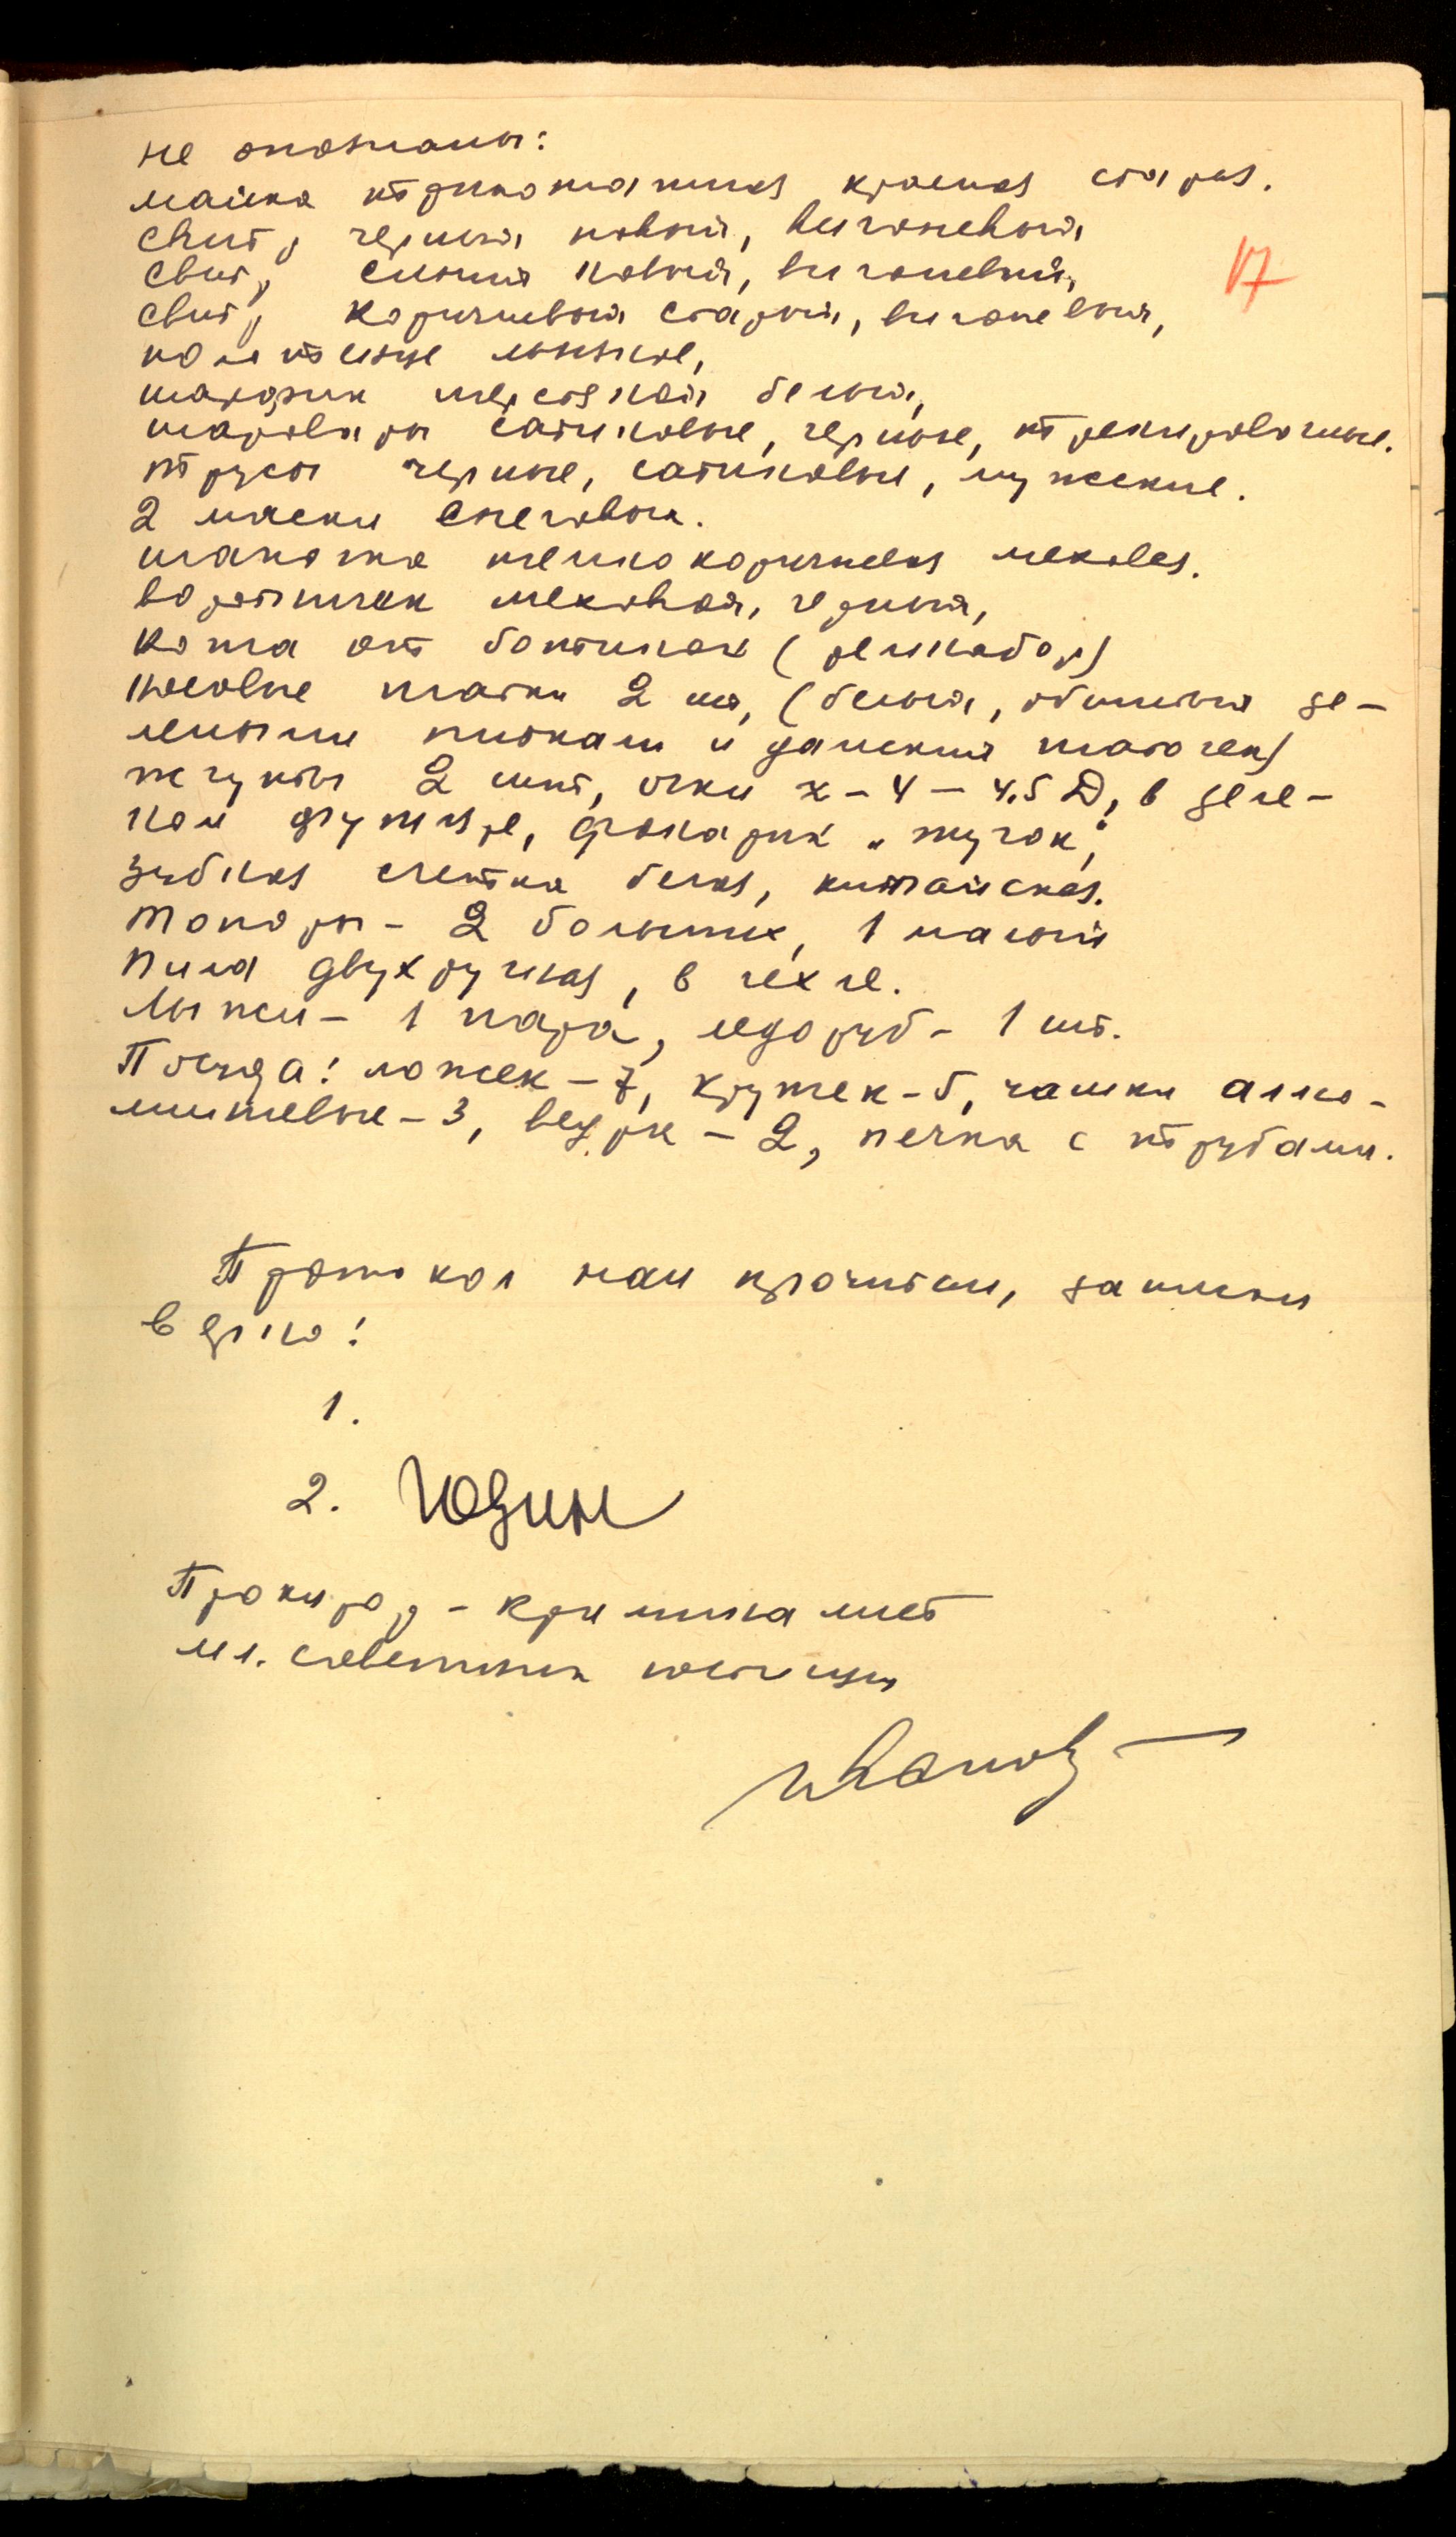 не опознаны:
майка трикотажная красная старая.
свитр черный новый, вигоневый
свитр синий новый, вигоневый,
17
свитр коричневый старый, вигоневый,
полотенце льняное,
шарфик шерстяной белый,
шаровары сатиновые, черные, тренировочные.
трусы черные, сатиновые, мужские.
2 маски снеговых.
шапочка темнокоричневая меховая.
воротничек меховой, черный,
кожа от ботинок (ремнабор)
носовые платки 2 шт, (белый, обшитый зе-
леными нитками и дамский платочек)
жгуты 2 шт, очки х - 4 - 4.5 D, в зеле-
ном футляре, фонарик „жучок",
зубная щетка белая, китайская.
Топоры - 2 больших, 1 малый
Пила двухручная, в чехле.
Лыжи - 1 пара, ледоруб - 1 шт.
Посуда: ложек - 7, кружек - 5, чашки алю-
миниевые - 3, ведра - 2, печка с трубами.
Протокол нам прочитан, записан
верно:
1.
2. Юдин
Прокурор - криминалист
мл. советник юстиции
Иванов